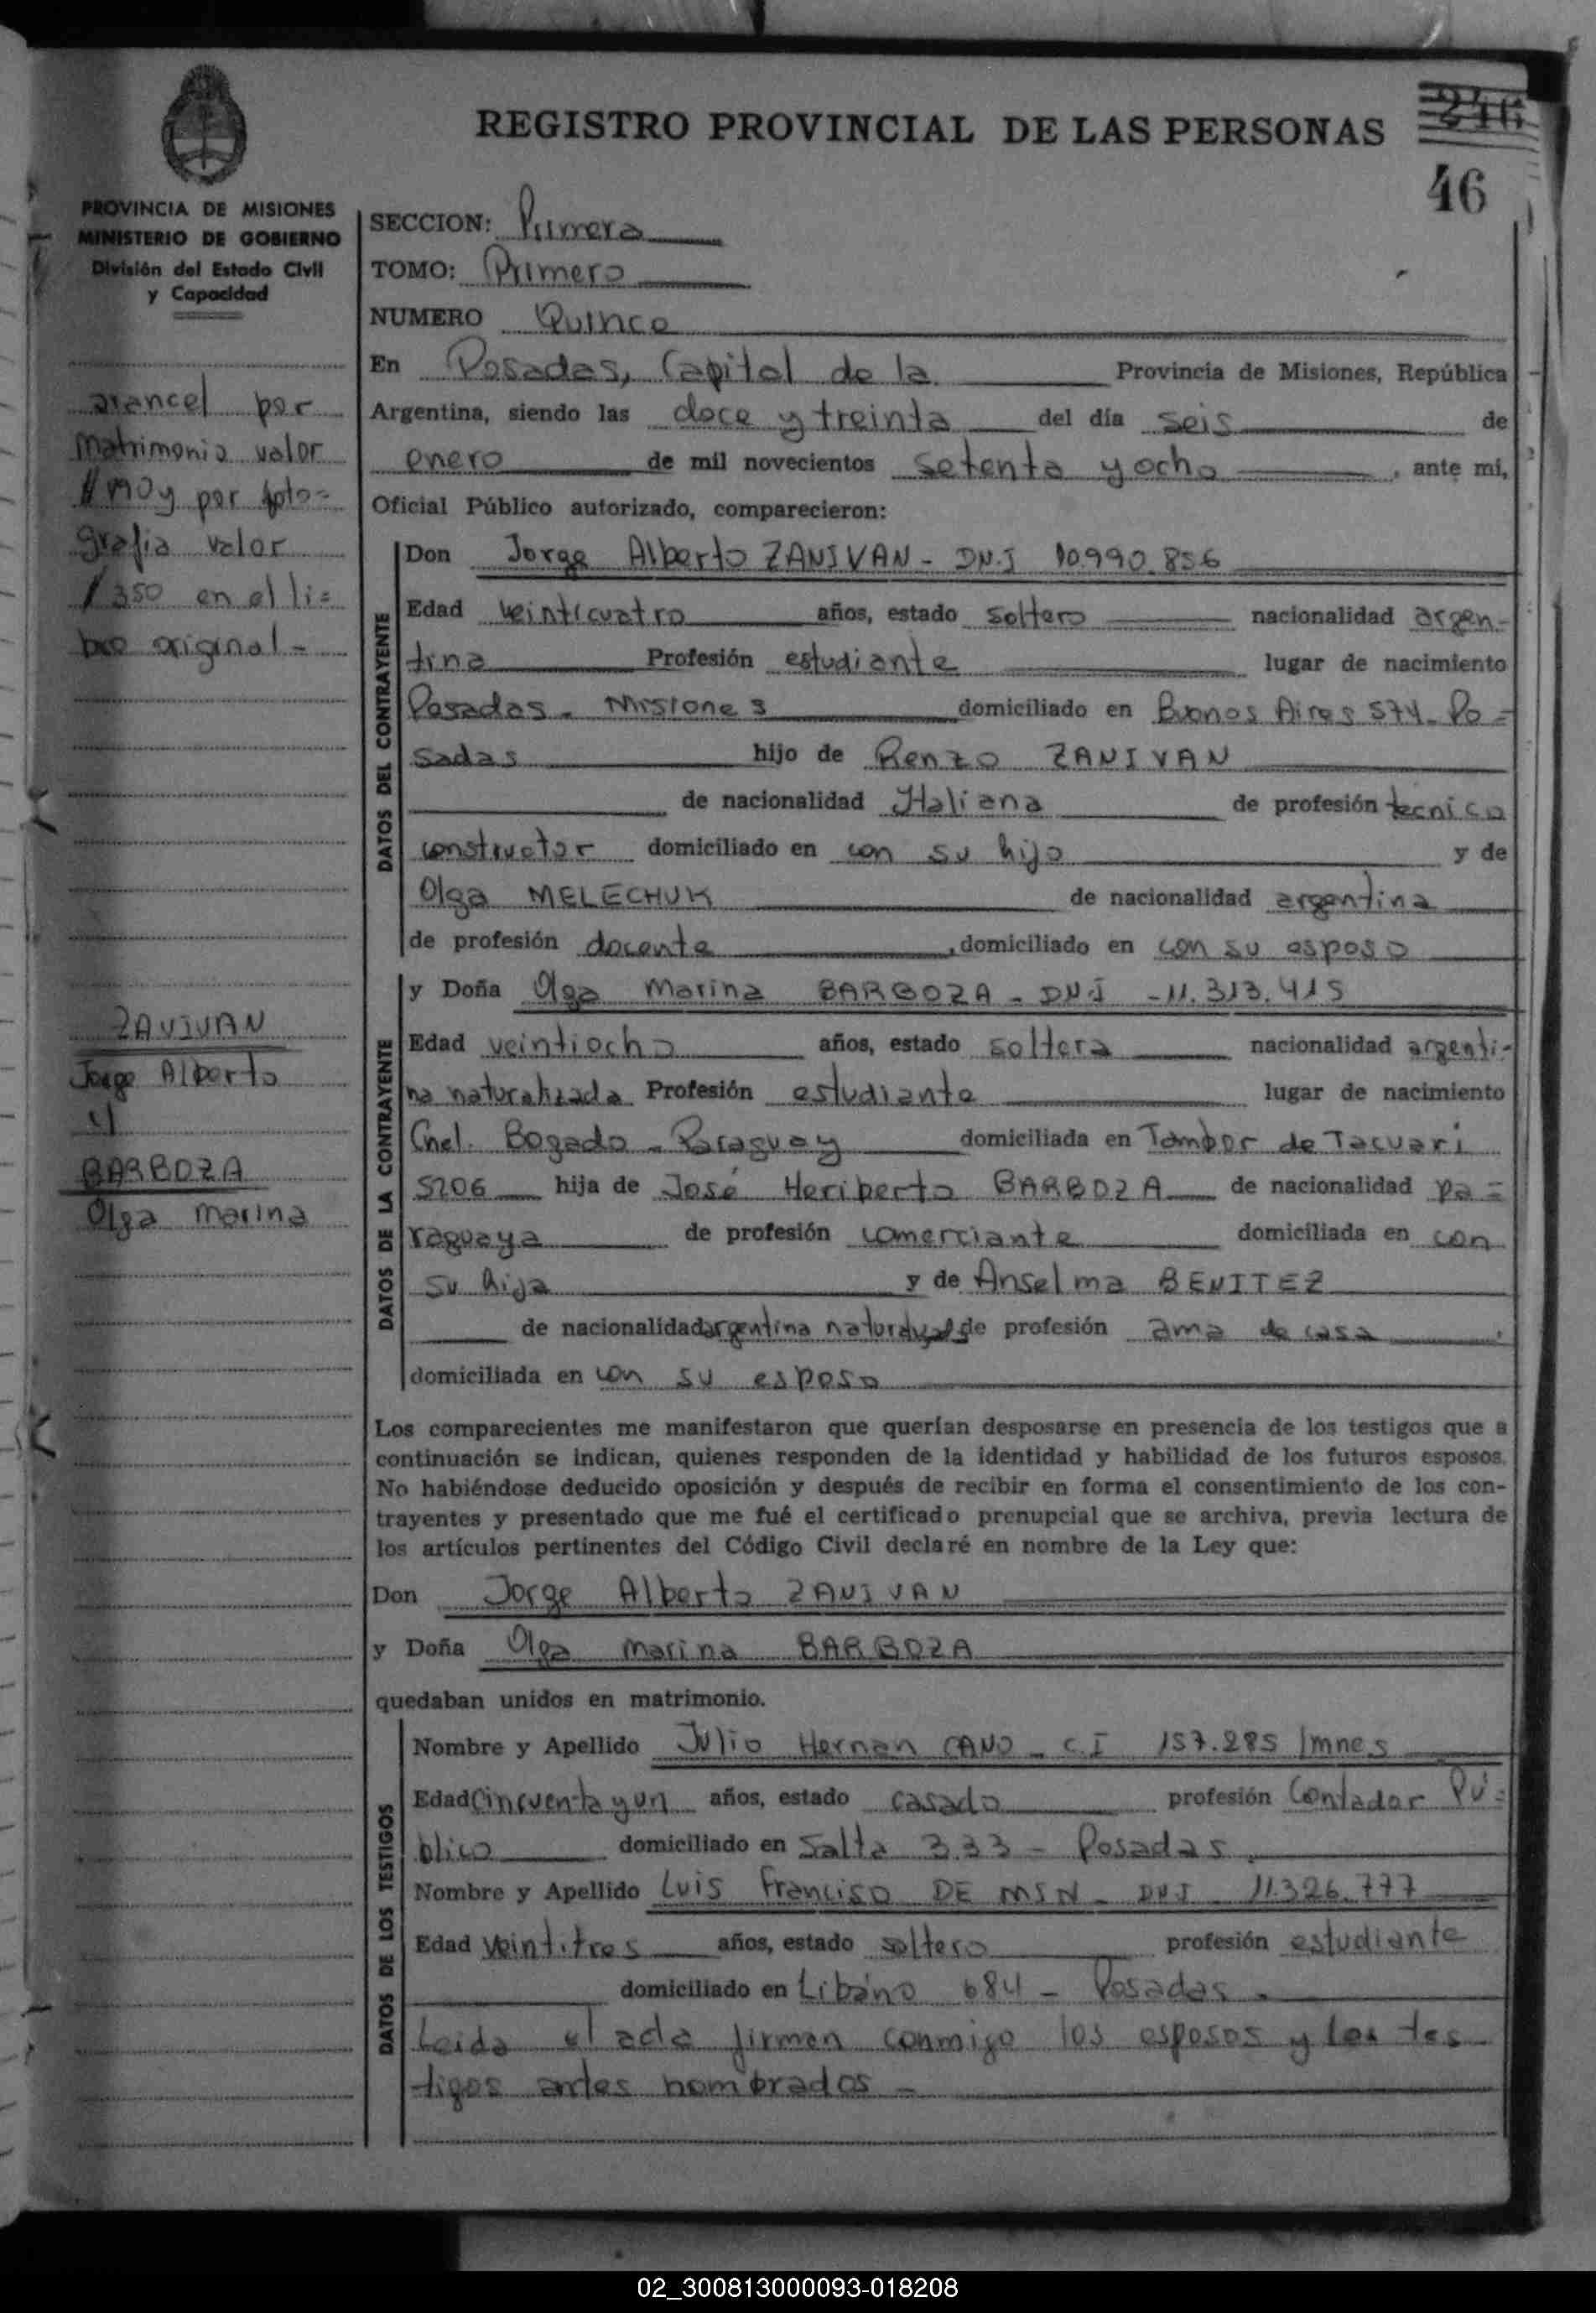 REGISTRO PROVINCIAL DE LAS PERSONAS
246
46
PROVINCIA DE MISIONES
MINISTERIO DE GOBIERNO
División del Estado Civil
y Capacidad
arancel por
matrimonio valor
y por foto=
grafia valor
350 en el li=
bro original -
ZANIVAN
Jorge Alberto
y
BARBOZA
Olga Marina
SECCION: Primera
TOMO: Primero
NUMERO Quince
En Posadas, Capital de la Provincia de Misiones, República
Argentina, siendo las doce y treinta del día seis de
enero de mil novecientos setenta y ocho, ante mí,
Oficial Público autorizado, comparecieron:
DATOS DEL CONTRAYENTE
Don Jorge Alberto ZANIVAN - DN.I 10.990.856
Edad veinticuatro años, estado soltero nacionalidad argen-
tina Profesión estudiante lugar de nacimiento
Posadas - Misiones domiciliado en Buenos Aires 574 - Po=
sadas hijo de Renzo ZANIVAN
de nacionalidad Italiana de profesión tecnico
constructor domiciliado en con su hijo y de
Olga MELECHUK de nacionalidad argentina
de profesión docente, domiciliado en con su esposo
DATOS DE LA CONTRAYENTE
y Doña Olga Marina BARBOZA - DN.I - 11.313.415
Edad veintiocho años, estado soltera nacionalidad argenti-
na naturalizada Profesión estudiante lugar de nacimiento
Cnel. Bogado - Paraguay domiciliada en Tambor de Tacuari
5206 hija de José Heriberto BARBOZA de nacionalidad pa=
raguaya de profesión comerciante domiciliada en con
su hija y de Anselma BENITEZ
de nacionalidad argentina de profesión ama de casa,
domiciliada en con su esposo
Los comparecientes me manifestaron que querían desposarse en presencia de los testigos que a
continuación se indican, quienes responden de la identidad y habilidad de los futuros esposos.
No habiéndose deducido oposición y después de recibir en forma el consentimiento de los con-
trayentes y presentado que me fué el certificado prenupcial que se archiva, previa lectura de
los artículos pertinentes del Código Civil declaré en nombre de la Ley que:
Don Jorge Alberto ZANIVAN
y Doña Olga Marina BARBOZA
quedaban unidos en matrimonio.
DATOS DE LOS TESTIGOS
Nombre y Apellido Julio Hernan CANO - C.I 157.285 /mnes
Edad Cincuenta y un años, estado casado profesión Contador Pú=
blico domiciliado en Salta 333 - Posadas.
Nombre y Apellido Luis Franciso DE MSN - DNI 11.326.777
Edad veintitres años, estado soltero profesión estudiante
domiciliado en Libáno 684 - Posadas.
Leida el acta firman conmigo los esposos y los tes-
tigos antes nombrados -
02_300813000093-018208